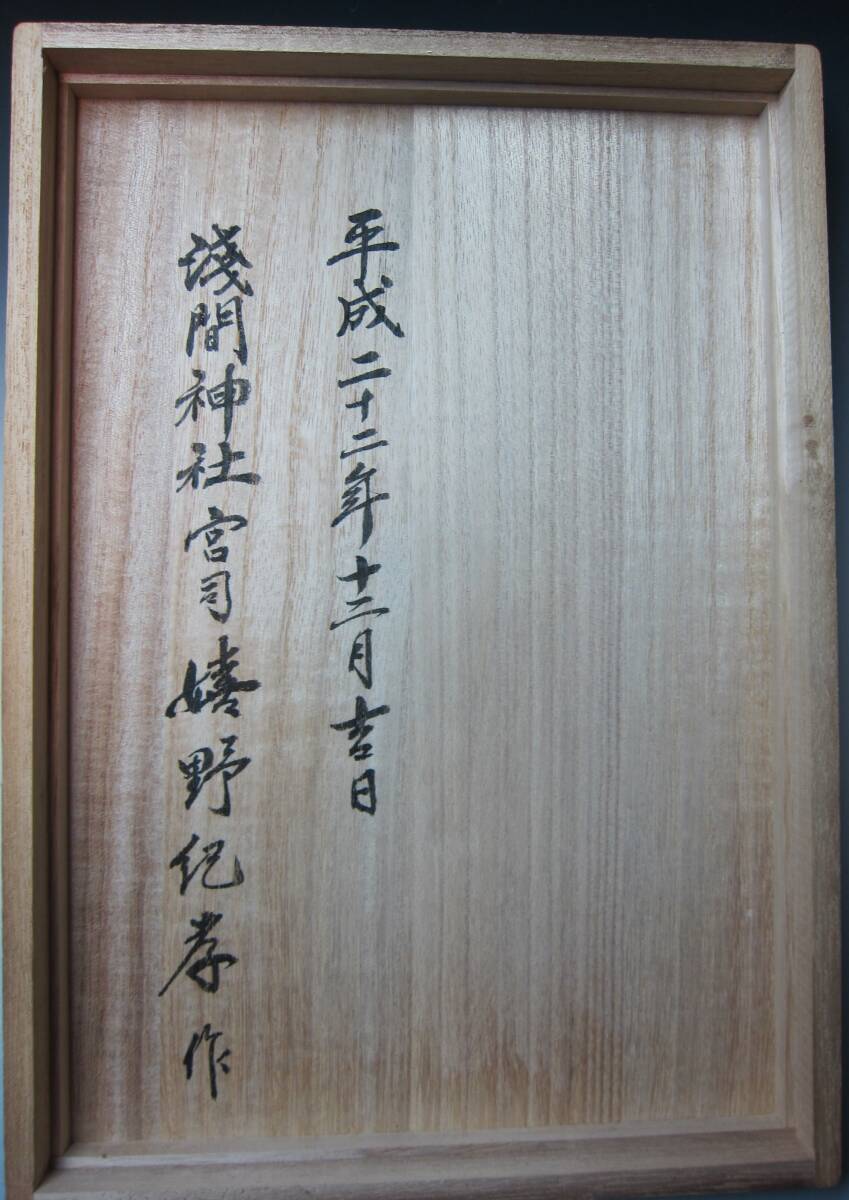 平成二十二年十二月吉日
淺間神社宮司嬉野紀孝作